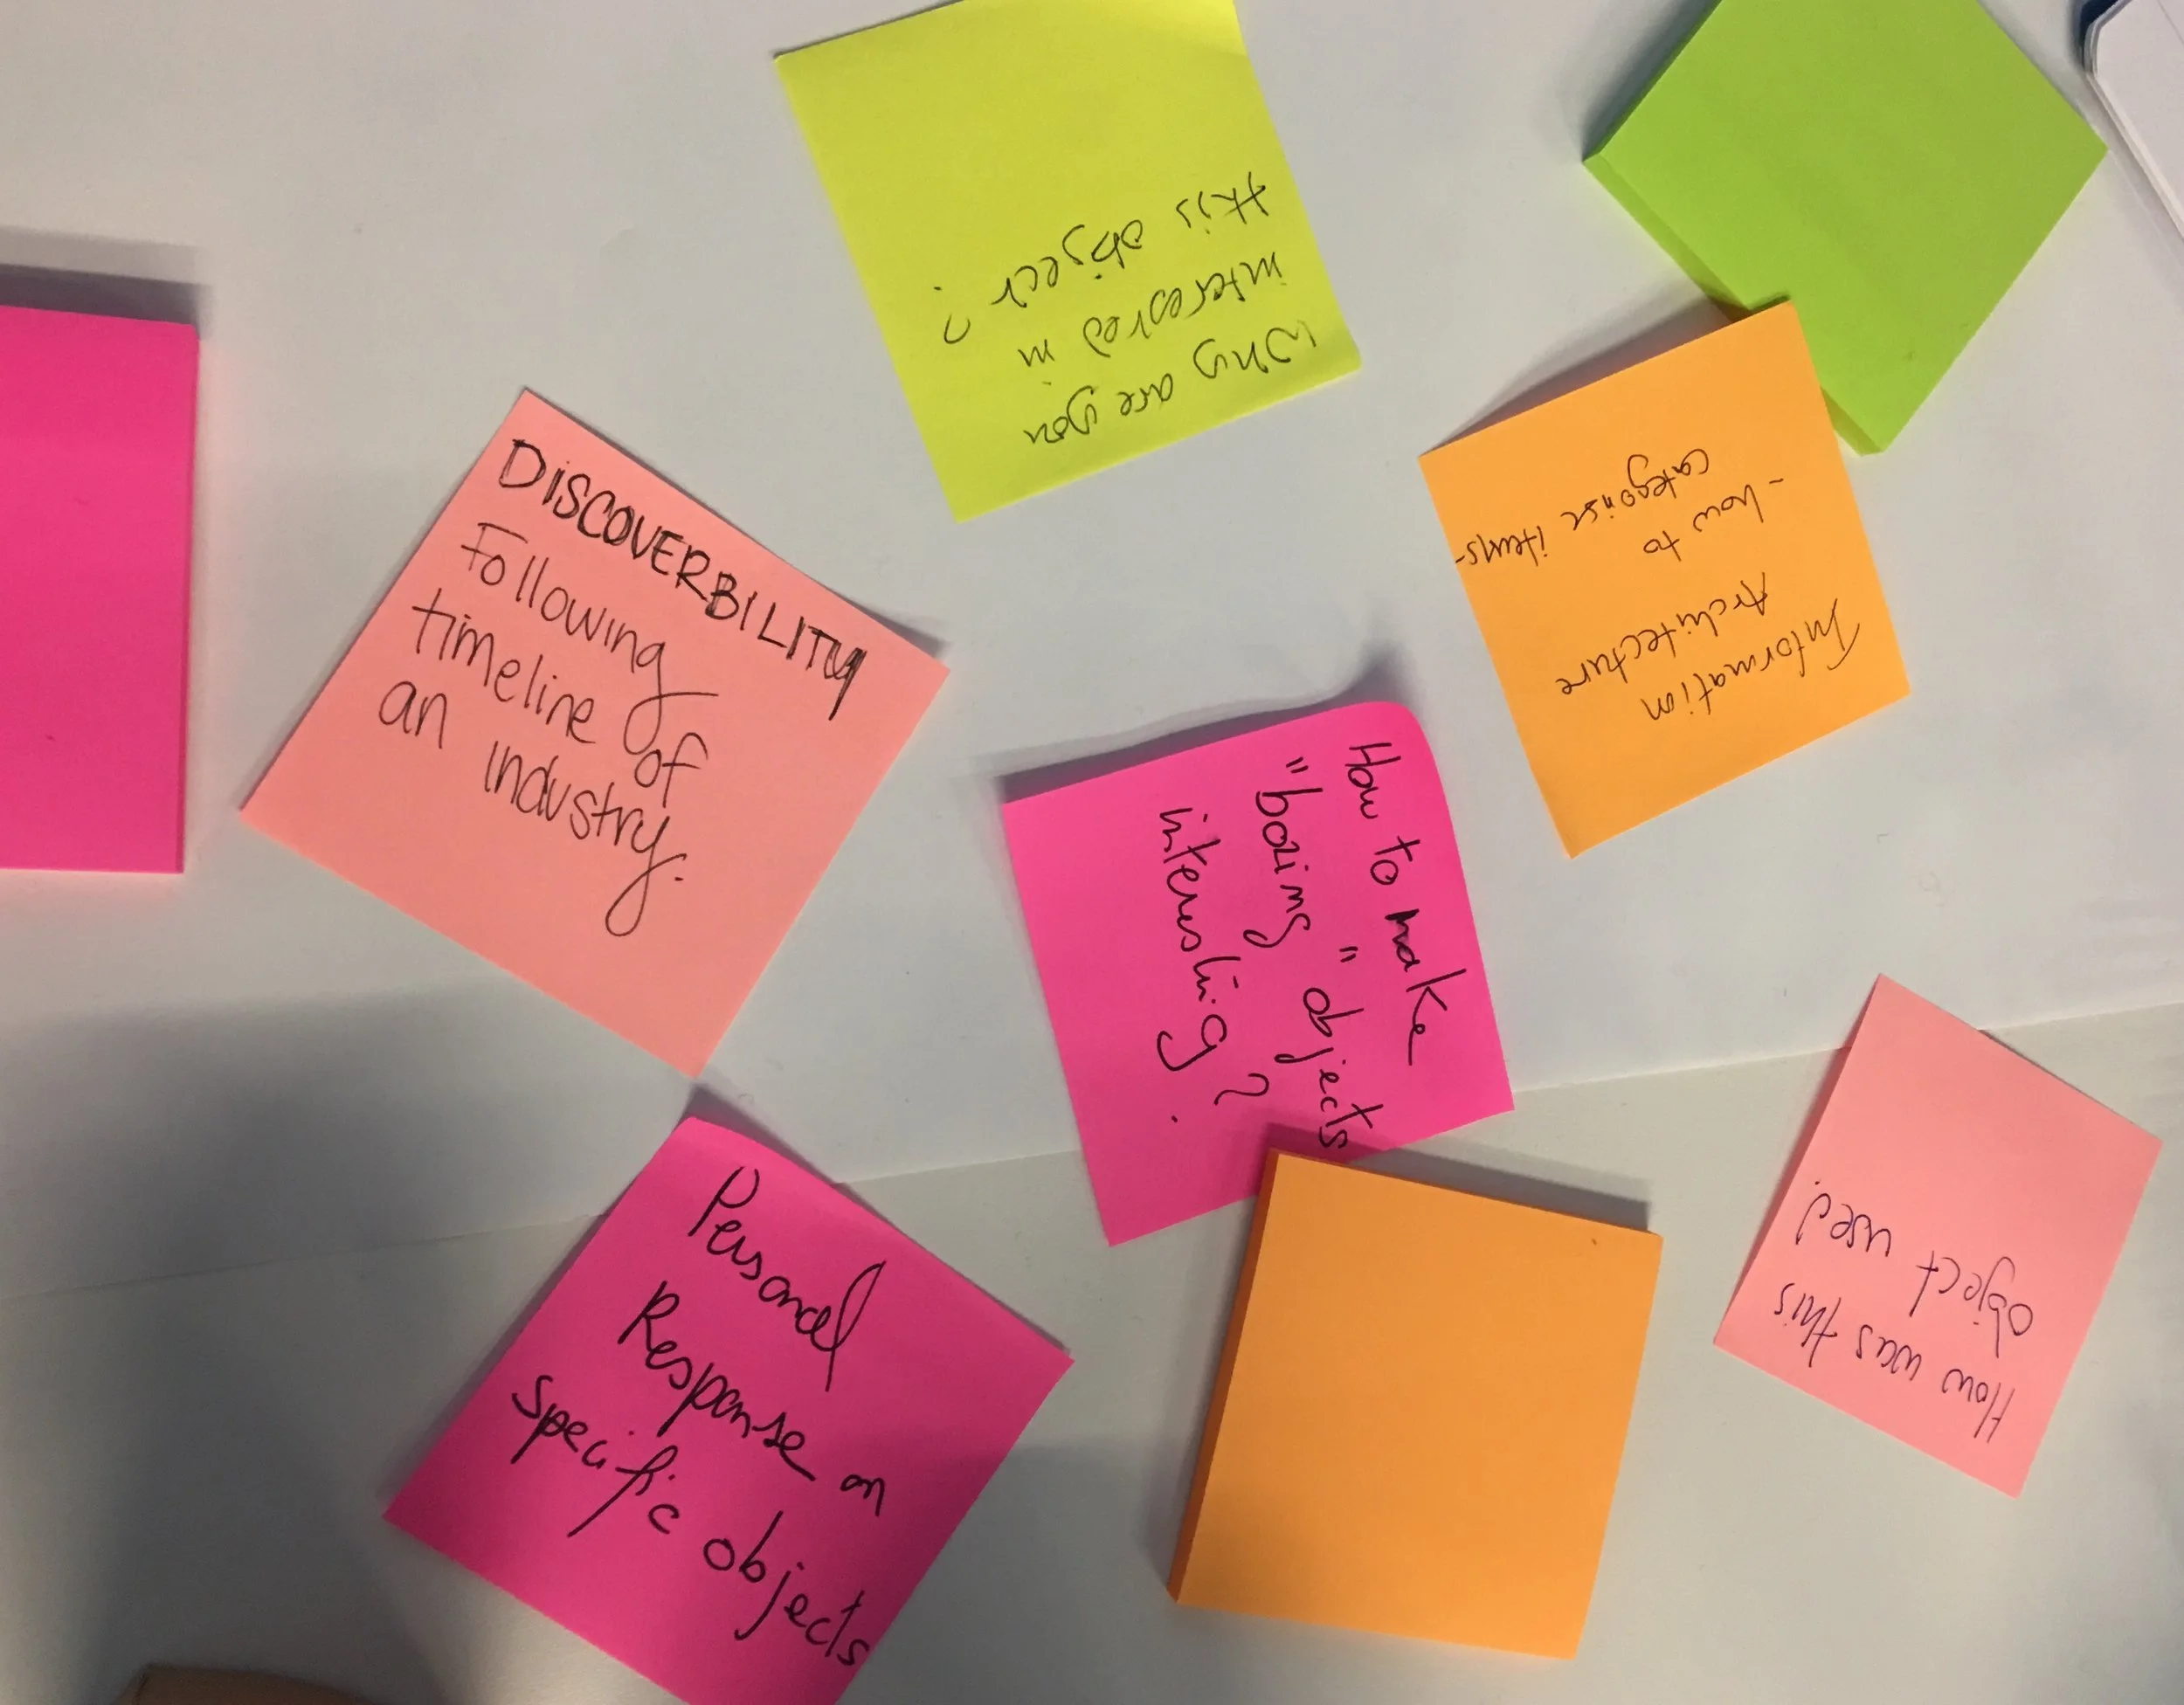 Why are you
interested in
this object?
DISCOVERBILITY
Following
timeline of
an industry.
Information
Architecture
- how to
categorise items-
How to make
"boring" objects
interesting?
How was this
object used.
Personal
Response on
specific objects